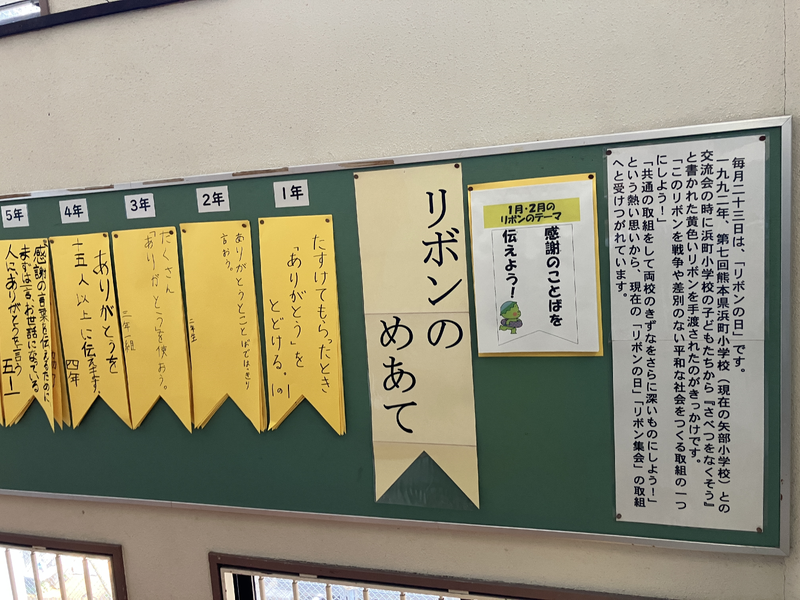 毎月二十三日は、「リボンの日」です。
一九九二年、第七回熊本県浜町小学校（現在の矢部小学校）との
交流会の時に浜町小学校の子どもたちから『さべつをなくそう』
と書かれた黄色いリボンを手渡されたのがきっかけです。
「このリボンを戦争や差別のない平和な社会をつくる取組の一つ
にしよう！」
「共通の取組をして両校のきずなをさらに深いものにしよう！」
という熱い思いから、現在の「リボンの日」「リボン集会」の取組
へと受けつがれています。
1月・2月の
リボンのテーマ
感謝のことばを
伝えよう！
リボンの
めあて
1年
たすけてもらったとき
「ありがとう」を
とどける。
1の1
2年
ありがとうとことばではっきり
言おう。
二年生
3年
たくさん
「ありがとう」を使おう。
三年一組
4年
ありがとうを
十五人以上に伝えます
四年
5年
感謝の言葉を伝えるために
まずは一言お世話になっている
人にありがとうを言う
五ー一